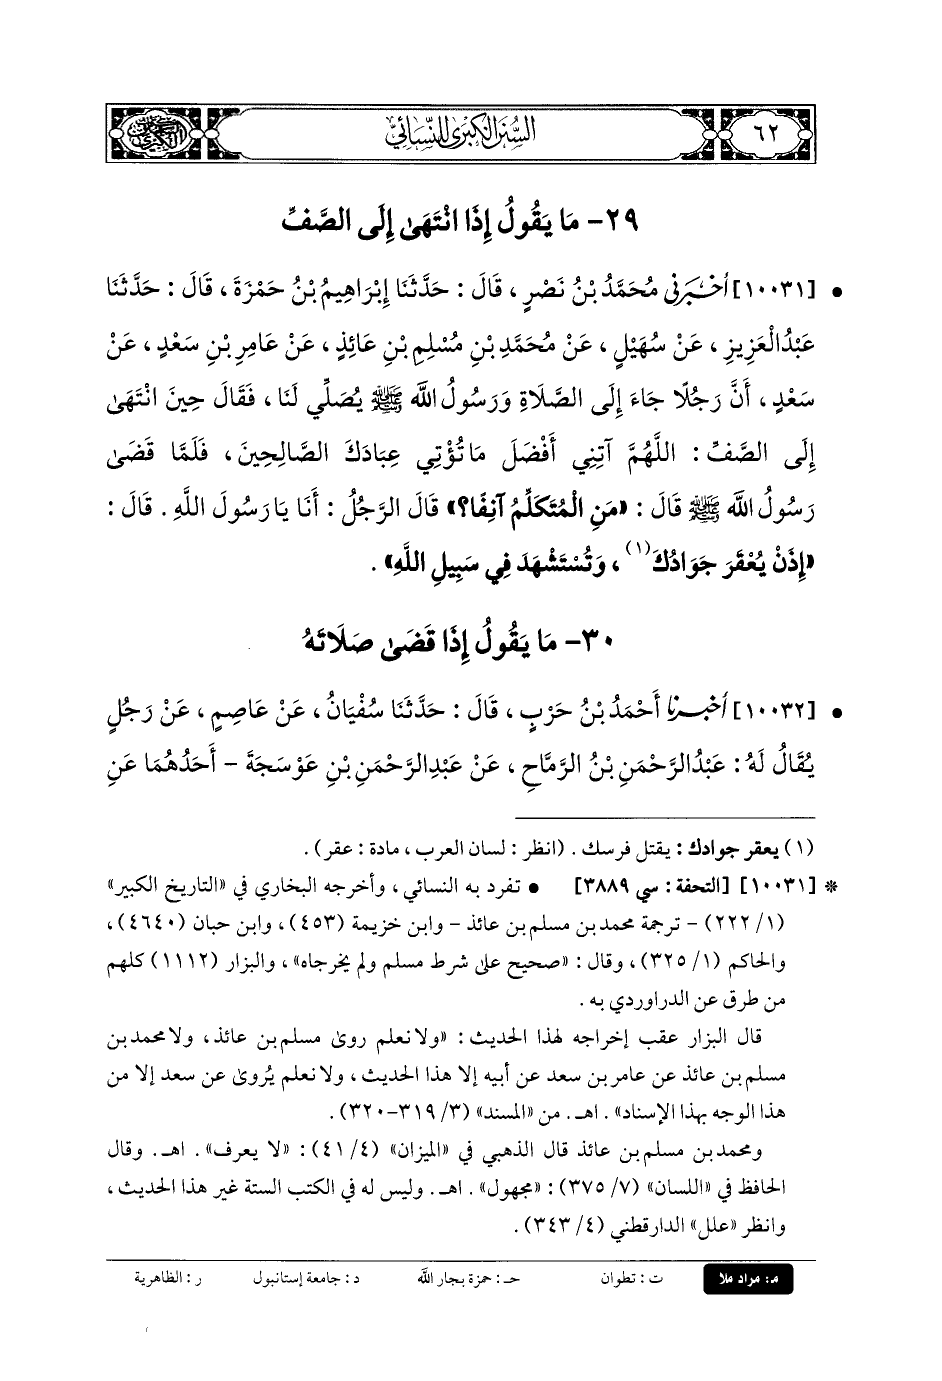 ٦٢
السنن الكبرى للنسائي
٢٩- مَا يَقُولُ إِذَا انْتَهَىٰ إِلَى الصَّفِّ
• [١٠٠٣١] أَخْبَرَنِي مُحَمَّدُ بْنُ نَصْرٍ ، قَالَ : حَدَّثَنَا إِبْرَاهِيمُ بْنُ حَمْزَةَ ، قَالَ : حَدَّثَنَا
عَبْدُالْعَزِيزِ ، عَنْ سُهَيْلٍ ، عَنْ مُحَمَّدِ بْنِ مُسْلِمِ بْنِ عَائِذٍ ، عَنْ عَامِرِ بْنِ سَعْدٍ ، عَنْ
سَعْدٍ ، أَنَّ رَجُلًا جَاءَ إِلَى الصَّلَاةِ وَرَسُولُ اللَّه ﷺ يُصَلِّي لَنَا ، فَقَالَ حِينَ انْتَهَىٰ
إِلَى الصَّفِّ : اللَّهُمَّ آتِنِي أَفْضَلَ مَا تُؤْتِي عِبَادَكَ الصَّالِحِينَ ، فَلَمَّا قَضَىٰ
رَسُولُ اللَّه ﷺ قَالَ : «مَنِ الْمُتَكَلِّمُ آنِفًا؟» قَالَ الرَّجُلُ : أَنَا يَا رَسُولَ اللَّهِ . قَالَ :
«إِذَنْ يُعْقَرَ جَوَادُكَ(١) ، وَتُسْتَشْهَدَ فِي سَبِيلِ اللَّهِ» .
٣٠- مَا يَقُولُ إِذَا قَضَىٰ صَلَاتَهُ
• [١٠٠٣٢] أَخْبَرَنَا أَحْمَدُ بْنُ حَرْبٍ ، قَالَ : حَدَّثَنَا سُفْيَانُ ، عَنْ عَاصِمٍ ، عَنْ رَجُلٍ
يُقَالُ لَهُ : عَبْدُالرَّحْمَنِ بْنُ الرَّمَّاحِ ، عَنْ عَبْدِالرَّحْمَنِ بْنِ عَوْسَجَةَ – أَحَدُهُمَا عَنِ
(١) يعقر جوادك : يقتل فرسك . (انظر : لسان العرب ، مادة : عقر) .
* [١٠٠٣١] [التحفة : سي ٣٨٨٩] • تفرد به النسائي ، وأخرجه البخاري في «التاريخ الكبير»
(١/ ٢٢٢) – ترجمة محمد بن مسلم بن عائذ – وابن خزيمة (٤٥٣) ، وابن حبان (٤٦٤٠) ،
والحاكم (١/ ٣٢٥) ، وقال : «صحيح على شرط مسلم ولم يخرجاه» ، والبزار (١١١٢) كلهم
من طرق عن الدراوردي به .
قال البزار عقب إخراجه لهذا الحديث : «ولا نعلم روىٰ مسلم بن عائذ ، ولا محمد بن
مسلم بن عائذ عن عامر بن سعد عن أبيه إلا هذا الحديث ، ولا نعلم يُروىٰ عن سعد إلا من
هذا الوجه بهذا الإسناد» . اهـ. من «المسند» (٣/ ٣١٩-٣٢٠) .
ومحمد بن مسلم بن عائذ قال الذهبي في «الميزان» (٤/ ٤١) : «لا يعرف» . اهـ. وقال
الحافظ في «اللسان» (٧/ ٣٧٥) : «مجهول» . اهـ. وليس له في الكتب الستة غير هذا الحديث ،
وانظر «علل» الدارقطني (٤/ ٣٤٣) .
م: مراد ملا ت : تطوان حـ : حمزة بجار الله د : جامعة إستانبول ر : الظاهرية